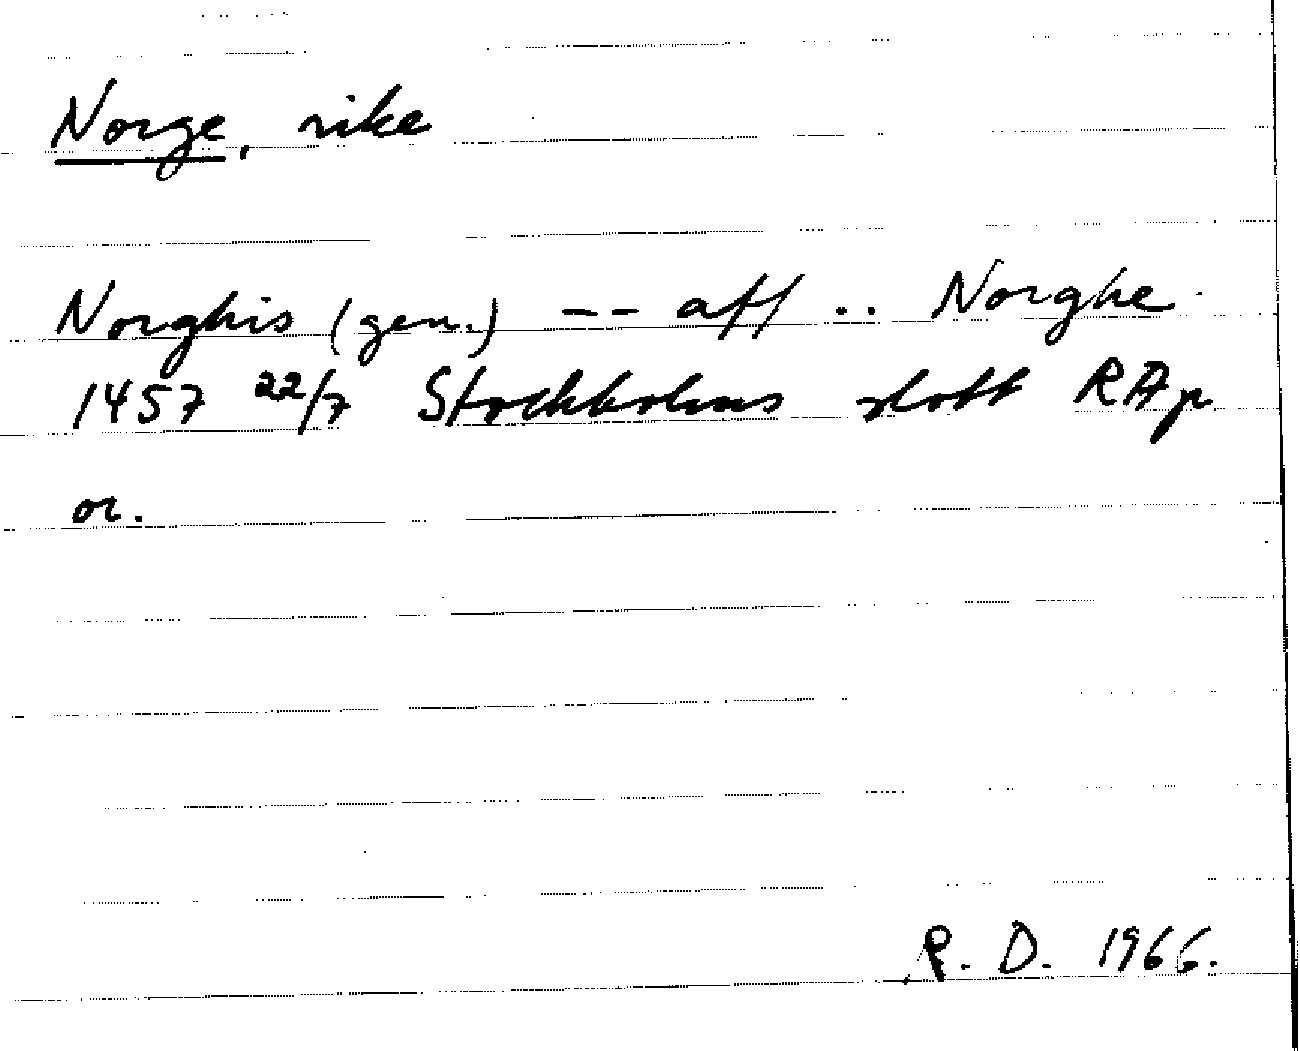 Norge, rike
Norghis (gen.) -- aff .. Norghe
1457 22/7 Stockholms slott RAp
or.
R. D. 1966.